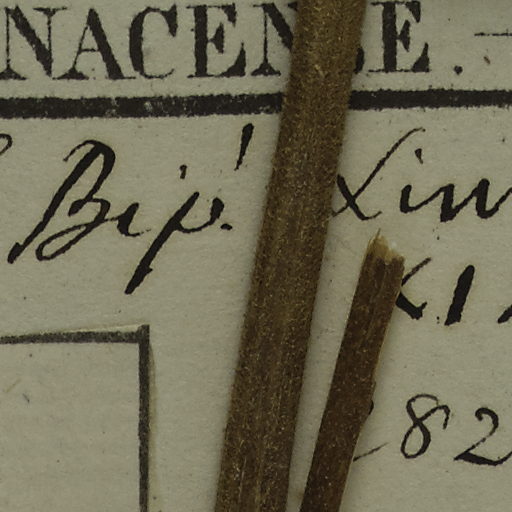 NACENSE. —
Bip! Lin
XI
82